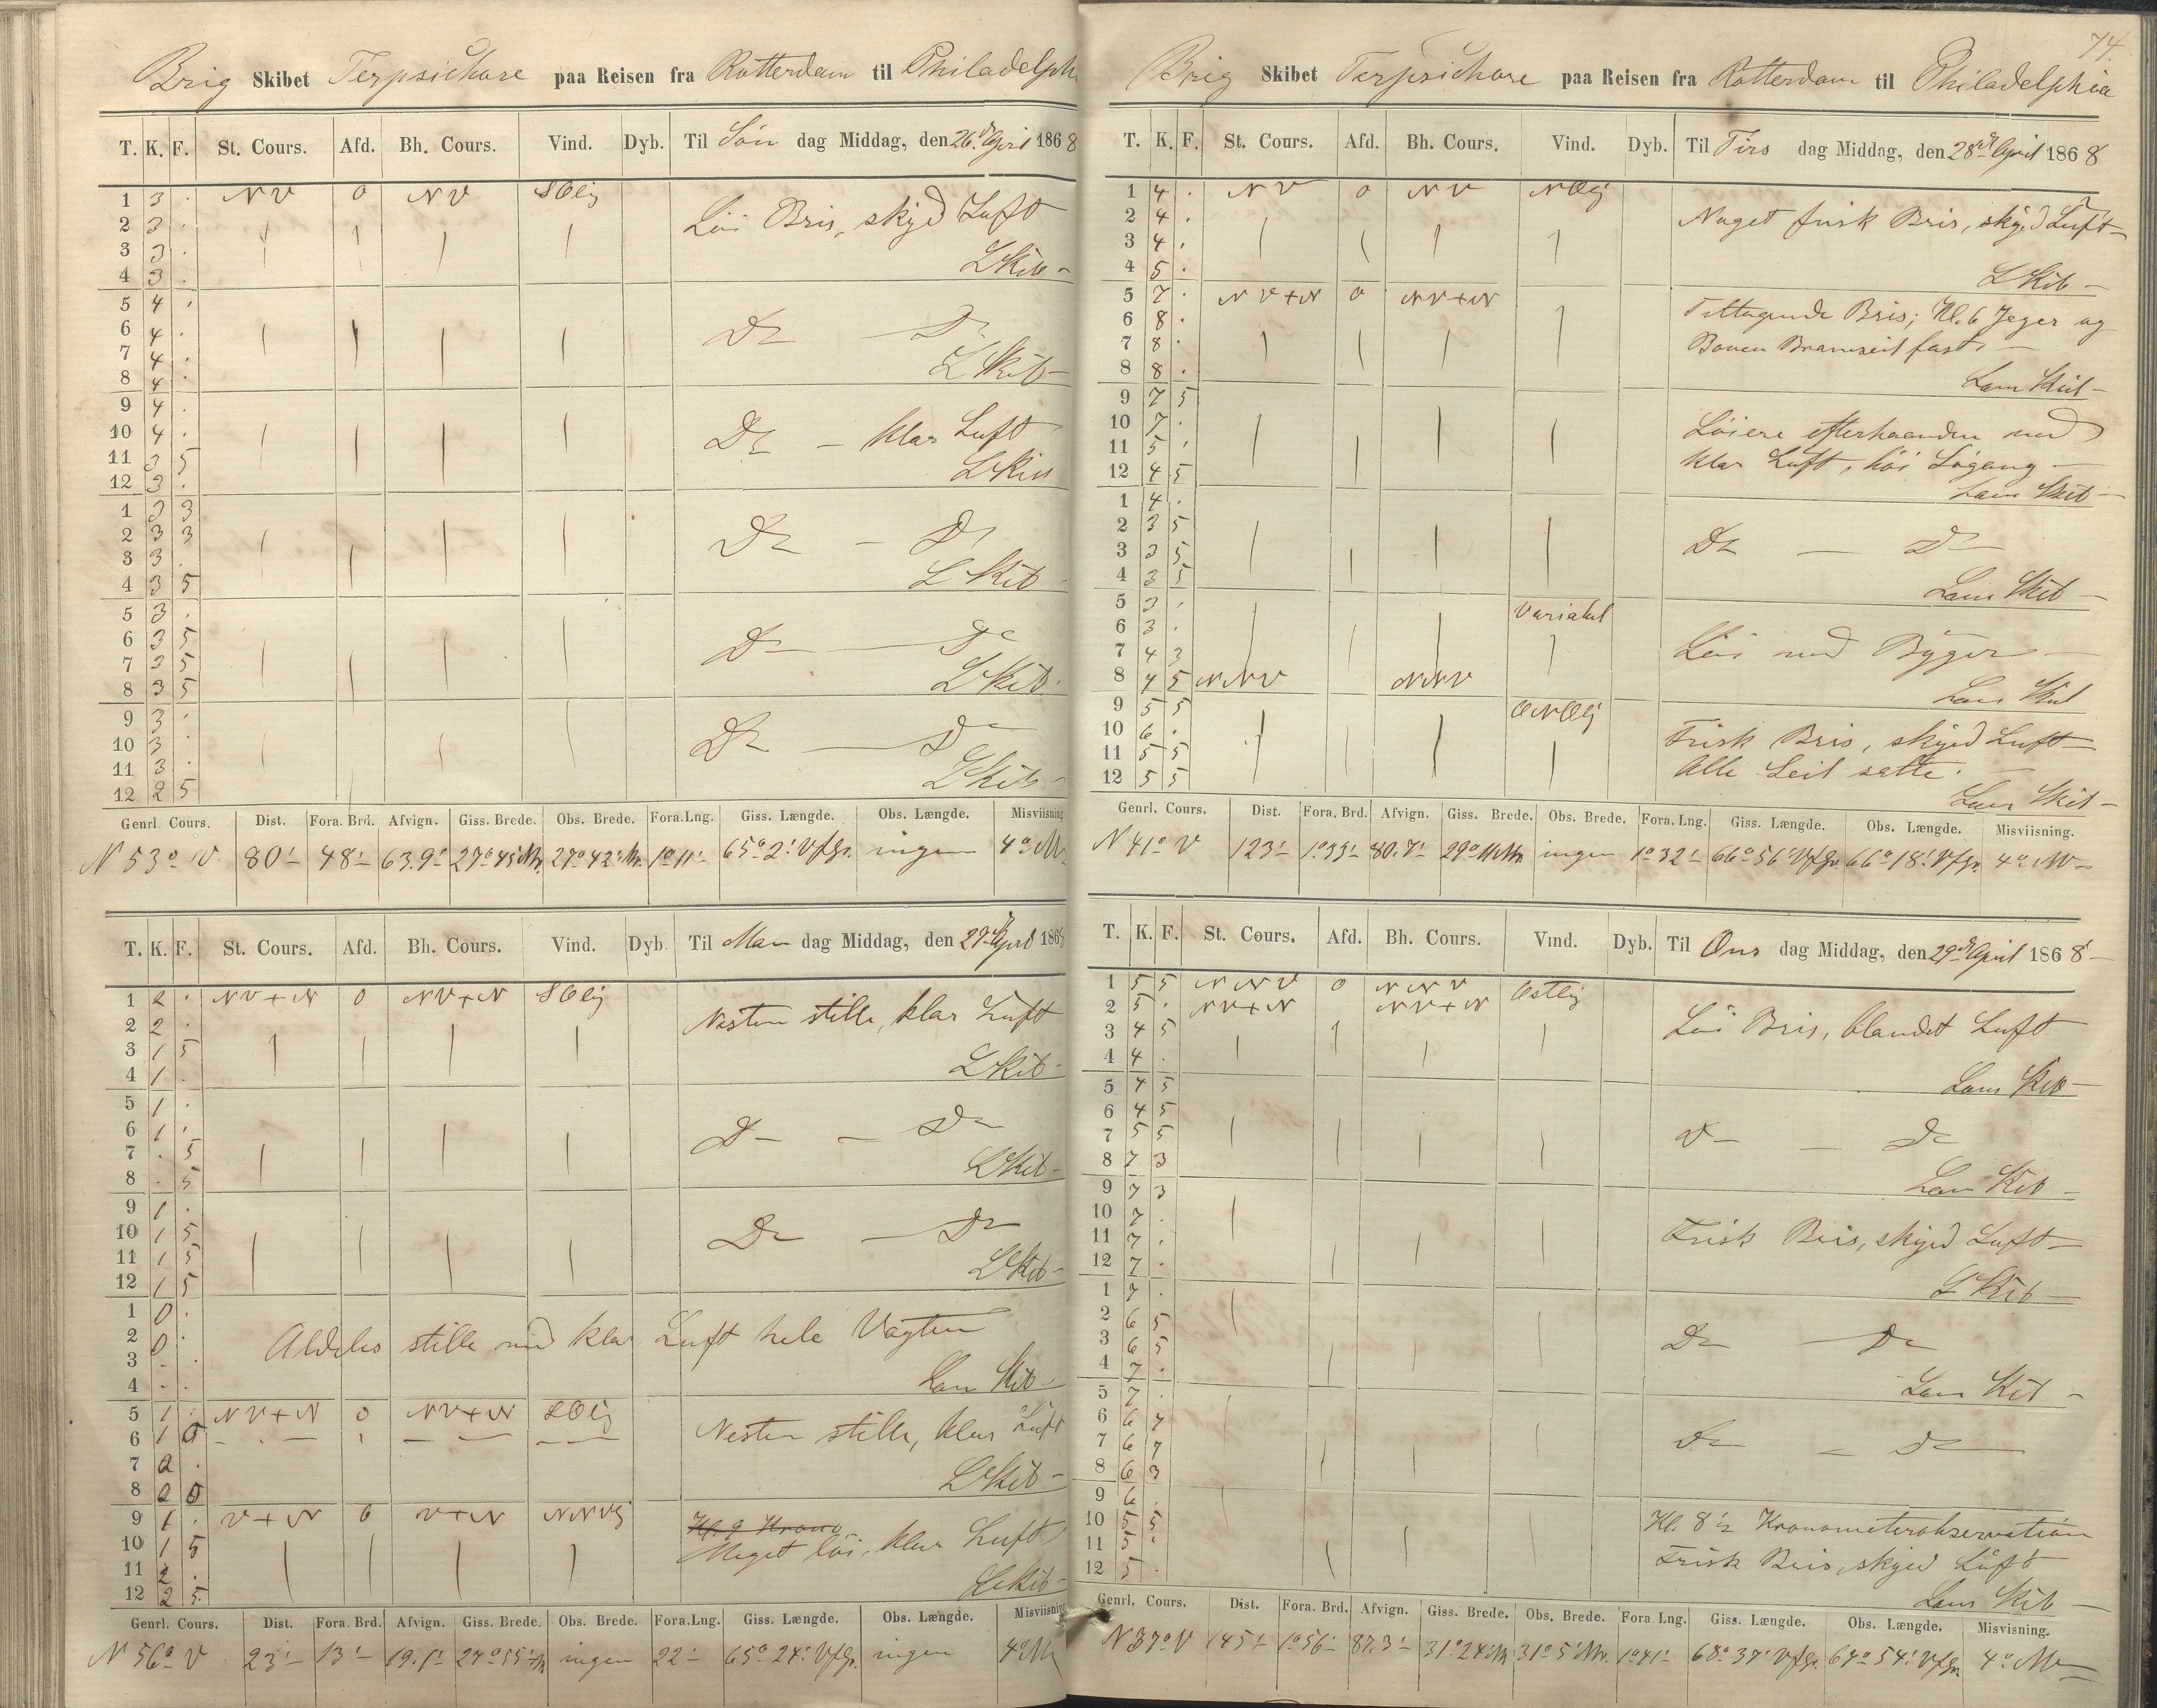 Brig Skibet Terpsichore paa Reisen fra Rotterdam til Philadelph
T. K. F. St. Cours. Afd. Bh. Cours. Vind. Dyb. Til Søn dag Middag, den 26d April 1868
1 3 . NV 0 NV SOlig
2 3 . Löi Bris, skyed Luft
3 3 .
4 3 . L Skib
5 4 .
6 4 . Do — Do
7 4 .
8 4 . L Skib
9 4 .
10 4 . Do — klar Luft
11 3 5
12 3 . L Skib
1 3 3
2 3 3 Do — Do
3 3 .
4 3 5 L Skib
5 3 .
6 3 5 Do — Do
7 3 5
8 3 5 L Skib
9 3 .
10 3 . Do — Do
11 3 .
12 2 5 L Skib
Genrl. Cours. Dist. Fora. Brd. Afvign. Giss. Brede. Obs. Brede. Fora. Lng. Giss. Længde. Obs. Længde. Misviisning
N 53° V. 80' 48' 63.9' 27° 45' N. 27° 42' N. 1° 11' 65° 2' VfGr. ingen 4° NV
T. K. F. St. Cours. Afd. Bh. Cours. Vind. Dyb. Til Man dag Middag, den 27d April 1868
1 2 . NV+N 0 NV+N SOlig
2 2 . Næsten stille, klar Luft
3 1 5
4 1 . L Skib
5 1 .
6 1 . Do — Do
7 . 5
8 . 5 L Skib
9 1 .
10 1 5 Do — Do
11 1 5
12 1 5 L Skib
1 0 .
2 0 . Aldeles stille med klar Luft hele Vagten
3 . .
4 . . Lam Skib
5 1 . NV+N 0 NV+N SOlig
6 1 5 Nesten stille, klar Luft
7 2 .
8 2 5 L Skib
9 1 . V+N 0 V+N NNVlig Kl. 9 Krono
10 1 5 Meget löi, klar Luft
11 2 .
12 2 5 L Skib
Genrl. Cours. Dist. Fora. Brd. Afvign. Giss. Brede. Obs. Brede. Fora. Lng. Giss. Længde. Obs. Længde. Misviisning
N 56° V 23' 13' 19.1' 27° 55' N ingen 22' 65° 24' VfGr. ingen 4° NV
74.
Brig Skibet Terpsichore paa Reisen fra Rotterdam til Philadelphia
T. K. F. St. Cours. Afd. Bh. Cours. Vind. Dyb. Til Tirs dag Middag, den 28d April 1868
1 4 . NV 0 NV NOlig
2 4 . Noget frisk Bris, skyed Luft
3 4 .
4 5 . L Skib
5 7 . NV+N 0 NV+N
6 8 . Tiltagende Bris; Kl. 6 Jager og
7 8 . Boven Bramseil fast
8 8 . Lam Skib
9 7 5
10 7 . Löiere efterhaanden med
11 5 . klar Luft, höi Sögang
12 4 5 Lam Skib
1 4 .
2 3 5 Do — Do
3 3 5
4 3 5 Lam Skib
5 3 . Variabel
6 3 . Löi med Byger
7 4 3
8 4 5 NNV NNV Lam Skib
9 5 5 ONOlig
10 6 . Frisk Bris, skyed Luft
11 5 5 Alle Seil satte.
12 5 5 Lam Skib
Genrl. Cours. Dist. Fora. Brd. Afvign. Giss. Brede. Obs. Brede. Fora. Lng. Giss. Længde. Obs. Længde. Misviisning.
N 41° V 123' 1° 33' 80.7' 29° N. ingen 1° 32' 66° 56' VfGr. 66° 18' VfGr. 4° NV
T. K. F. St. Cours. Afd. Bh. Cours. Vind. Dyb. Til Ons dag Middag, den 29d April 1868
1 5 5 NNV 0 NNV Ostlig
2 5 . NV+N NV+N
3 4 5 Löi Bris, blandet Luft
4 4 .
5 4 5 Lam Skib
6 4 5
7 5 5 Do — Do
8 7 3
9 7 3 Lam Skib
10 7 .
11 7 . Frisk Bris, skyed Luft
12 7 .
1 7 . L Skib
2 6 5
3 6 5 Do — Do
4 7 .
5 7 . Lam Skib
6 6 7
7 6 7 Do — Do
8 6 3
9 6 .
10 5 5 Kl. 8 1/2 Kronometerobservation
11 5 . Frisk Bris, skyed Luft
12 5 . Lam Skib
Genrl. Cours. Dist. Fora. Brd. Afvign. Giss. Brede. Obs. Brede. Fora. Lng. Giss. Længde. Obs. Længde. Misvisning.
N 37° V 145' 1° 56' 87.3' 31° 24' N 31° 5' N. 1° 41' 68° 37' VfGr. 67° 54' VfGr. 4° NV